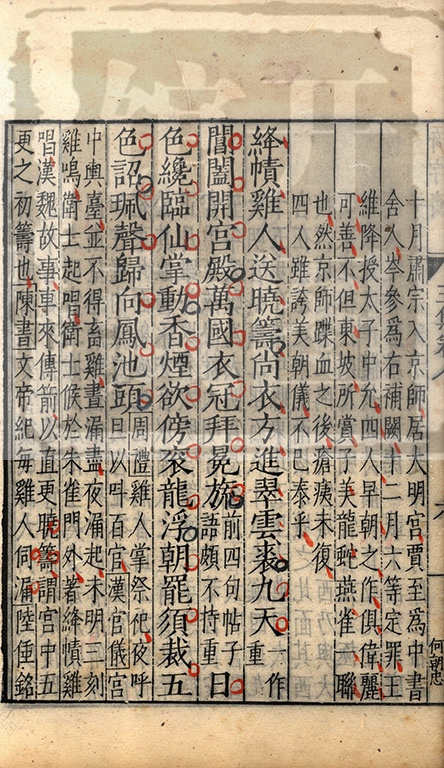 十月肅宗入京師居大明宮賈至為中書
舍人岑參為右補闕十二月六等定罪王
維降授太子中允四人早朝之作俱偉麗
可善不但東坡所賞子美龍蛇燕雀一聯
也然京師蹀血之後瘡痍未復
四人雖誇美朝儀不已泰乎
絳幘雞人送曉籌尚衣方進翠雲裘九天一作重
閶闔開宮殿萬國衣冠拜冕旒前四句帖子語頗不持重日
色纔臨仙掌動香煙欲傍衮龍浮朝罷須裁五
色詔珮聲歸向鳳池頭周禮雞人掌祭祀夜呼旦以呌百官漢官儀宮
中輿臺並不得畜雞晝漏盡夜漏起未明三刻
雞鳴衛士起唱衛士候於朱雀門外著絳幘雞
唱漢魏故事事來傳箭以直更曉籌謂宮中五
更之初籌也陳書文帝紀每雞人伺漏陸倕銘
何朝忠